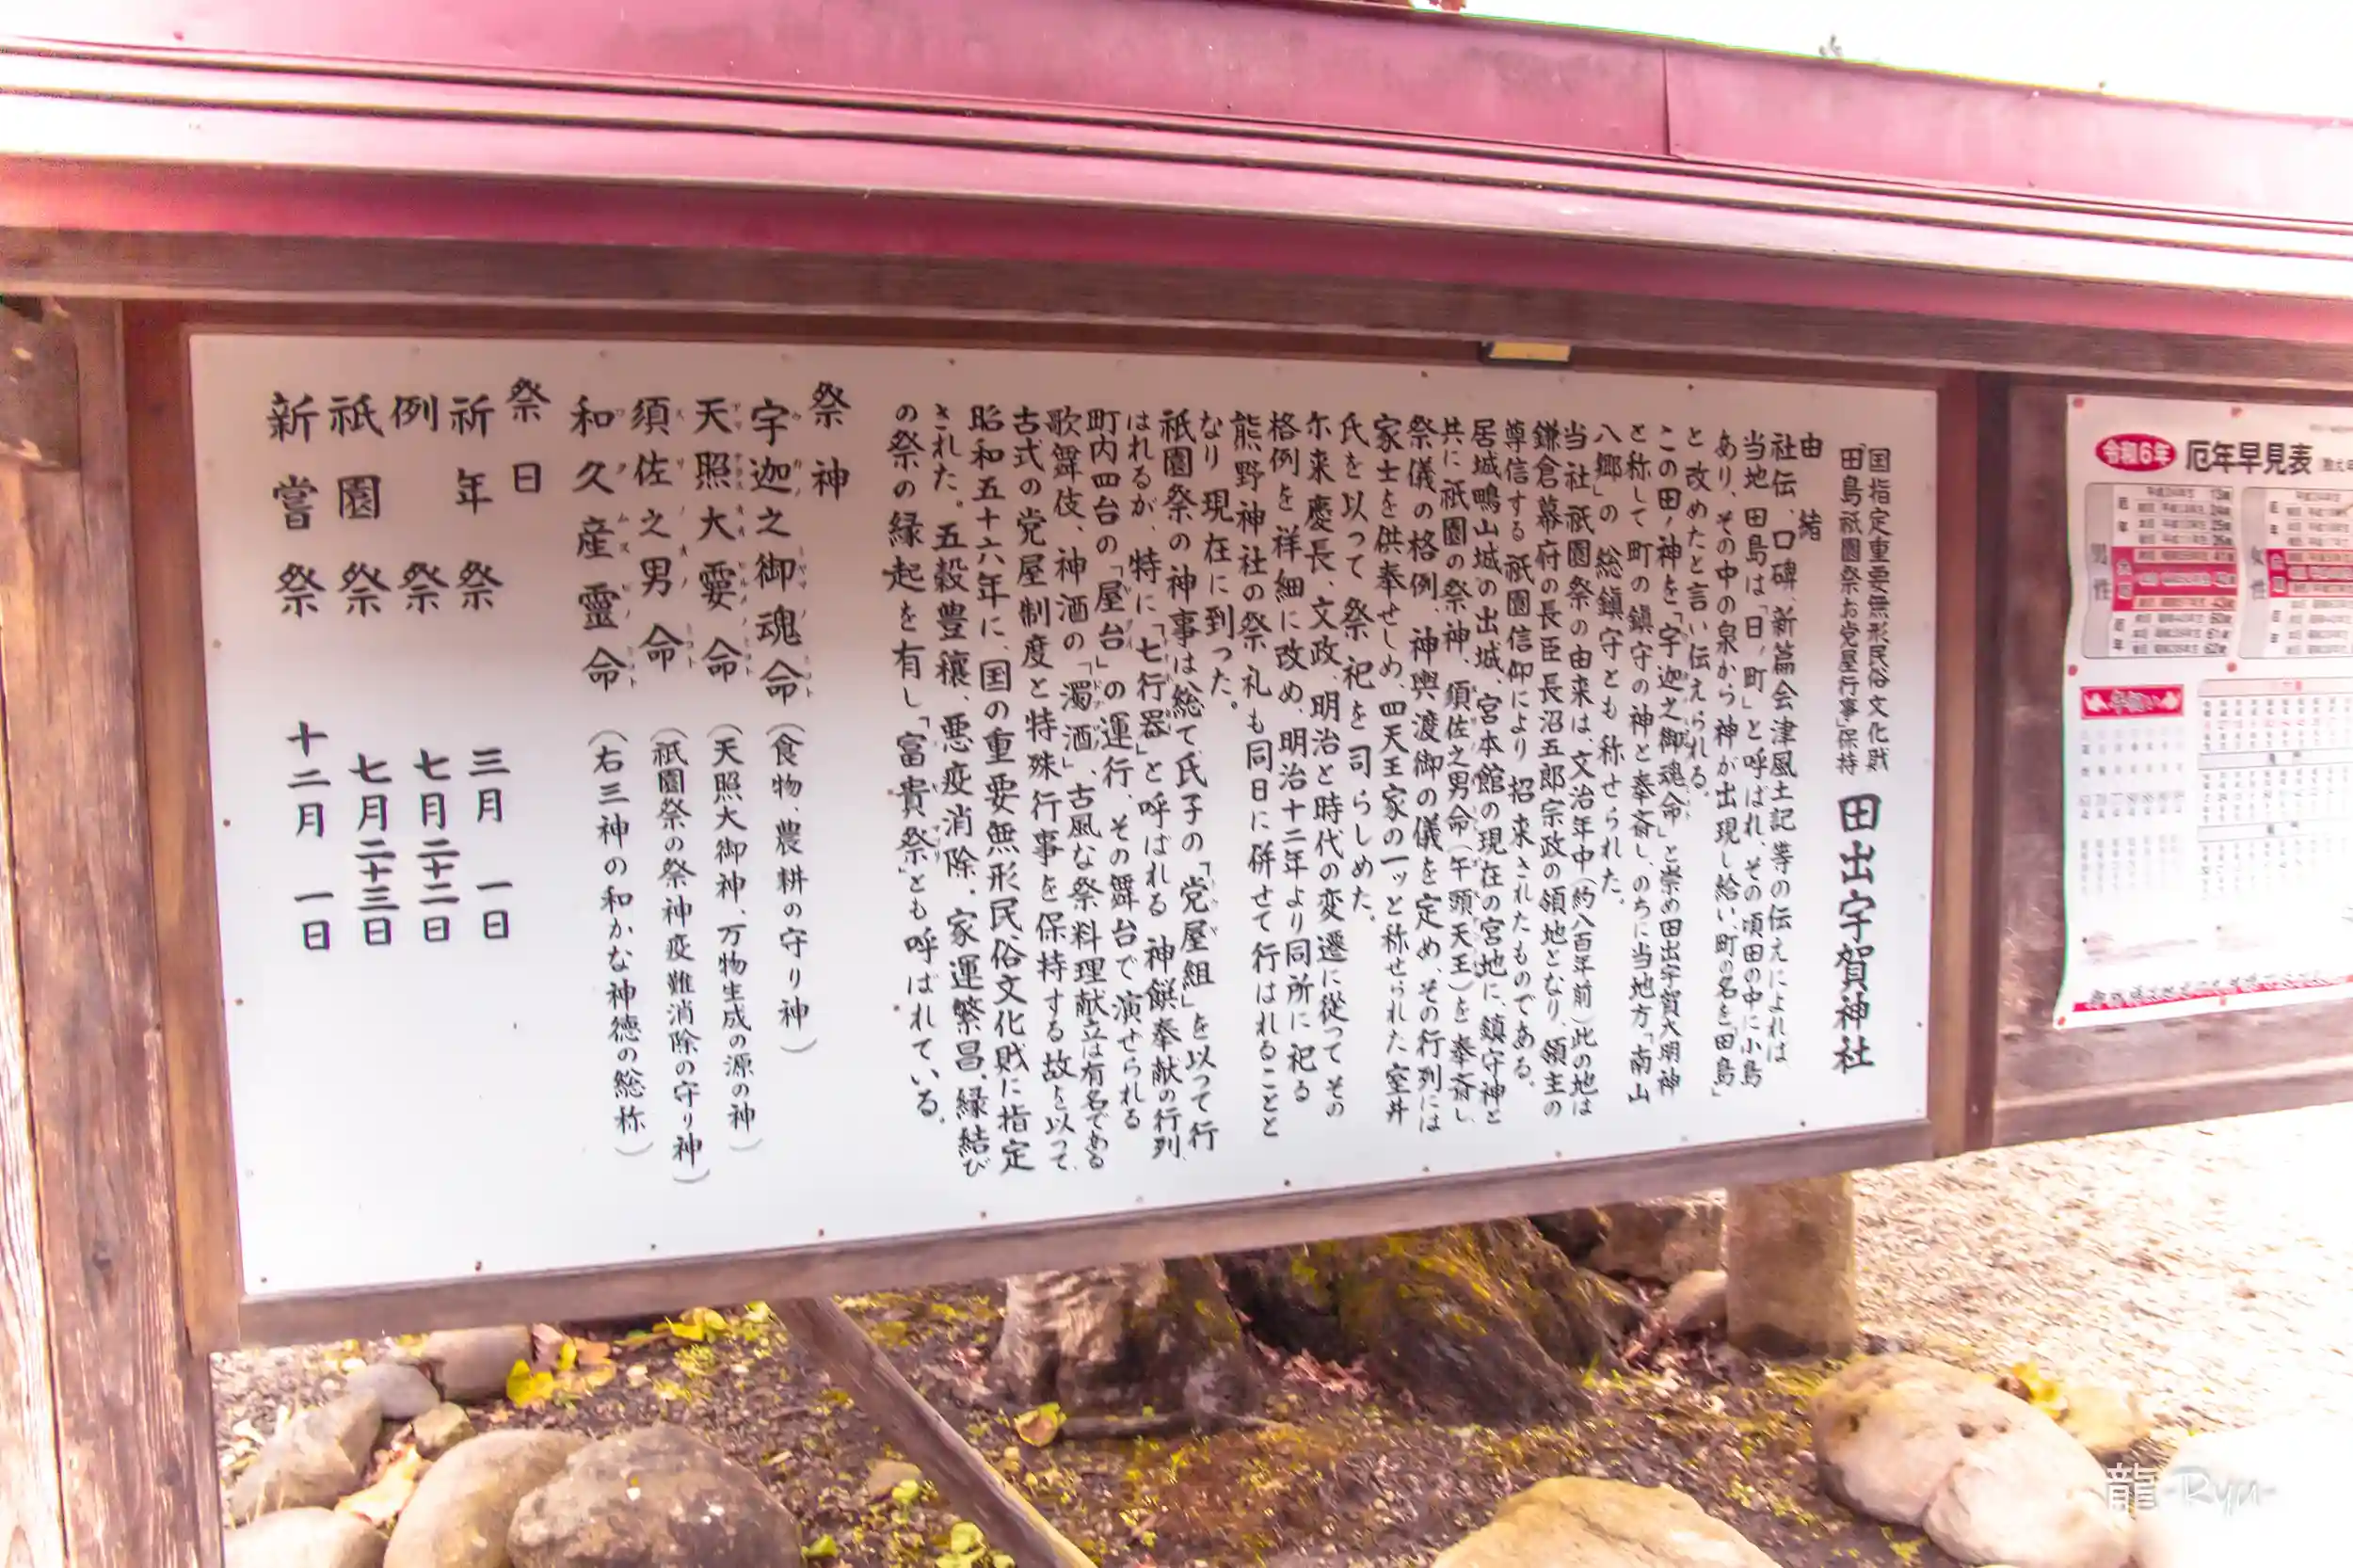 国指定重要無形民俗文化財
「田島祇園祭お党屋行事」保持
田出宇賀神社
由緒
社伝、口碑、新篇会津風土記等の伝えによれば
当地田島は「日ノ町」と呼ばれ、その頃田の中に小島
あり、その中の泉から神が出現し給い、町の名を「田島」
と改めたと言い伝えられる。
この田ノ神を、「宇迦之御魂命」と崇め田出宇賀大明神
と称して町の鎮守の神と奉斎し、のちに当地方「南山
八郷」の総鎮守とも称せられた。
当社祇園祭の由来は、文治年中(約八百年前)此の地は
鎌倉幕府の長臣長沼五郎宗政の領地となり、領主の
尊信する祇園信仰により招来されたものである。
居城鴫山城の出城、宮本館の現在の宮地に、鎮守神と
共に祇園の祭神、須佐之男命(午頭天王)を奉斎し、
祭儀の格例、神輿渡御の儀を定め、その行列には
家士を供奉せしめ、四天王家の一ッと称せられた室井
氏を以って祭祀を司らしめた。
尓来慶長、文政、明治と時代の変遷に従ってその
格例を祥細に改め、明治十二年より同所に祀る
熊野神社の祭礼も同日に併せて行はれることと
なり現在に到った。
祇園祭の神事は総て氏子の「党屋組」を以って行
はれるが、特に「七行器」と呼ばれる神饌奉献の行列、
町内四台の「屋台」の運行、その舞台で演せられる
歌舞伎、神酒の「濁酒」、古風な祭料理献立は有名である
古式の党屋制度と特殊行事を保持する故を以って、
昭和五十六年に、国の重要無形民俗文化財に指定
された。五穀豊穣、悪疫消除、家運繁昌、縁結び
の祭の縁起を有し「富貴祭」とも呼ばれている。
祭神
宇迦之御魂命(食物、農耕の守り神)
天照大孁命(天照大御神、万物生成の源の神)
須佐之男命(祇園祭の祭神疫難消除の守り神)
和久産霊命(右三神の和かな神徳の総称)
祭日
祈年祭 三月一日
例祭 七月二十二日
祇園祭 七月二十三日
新嘗祭 十二月一日
令和6年 厄年早見表
男性
女性
龍-Ryu-